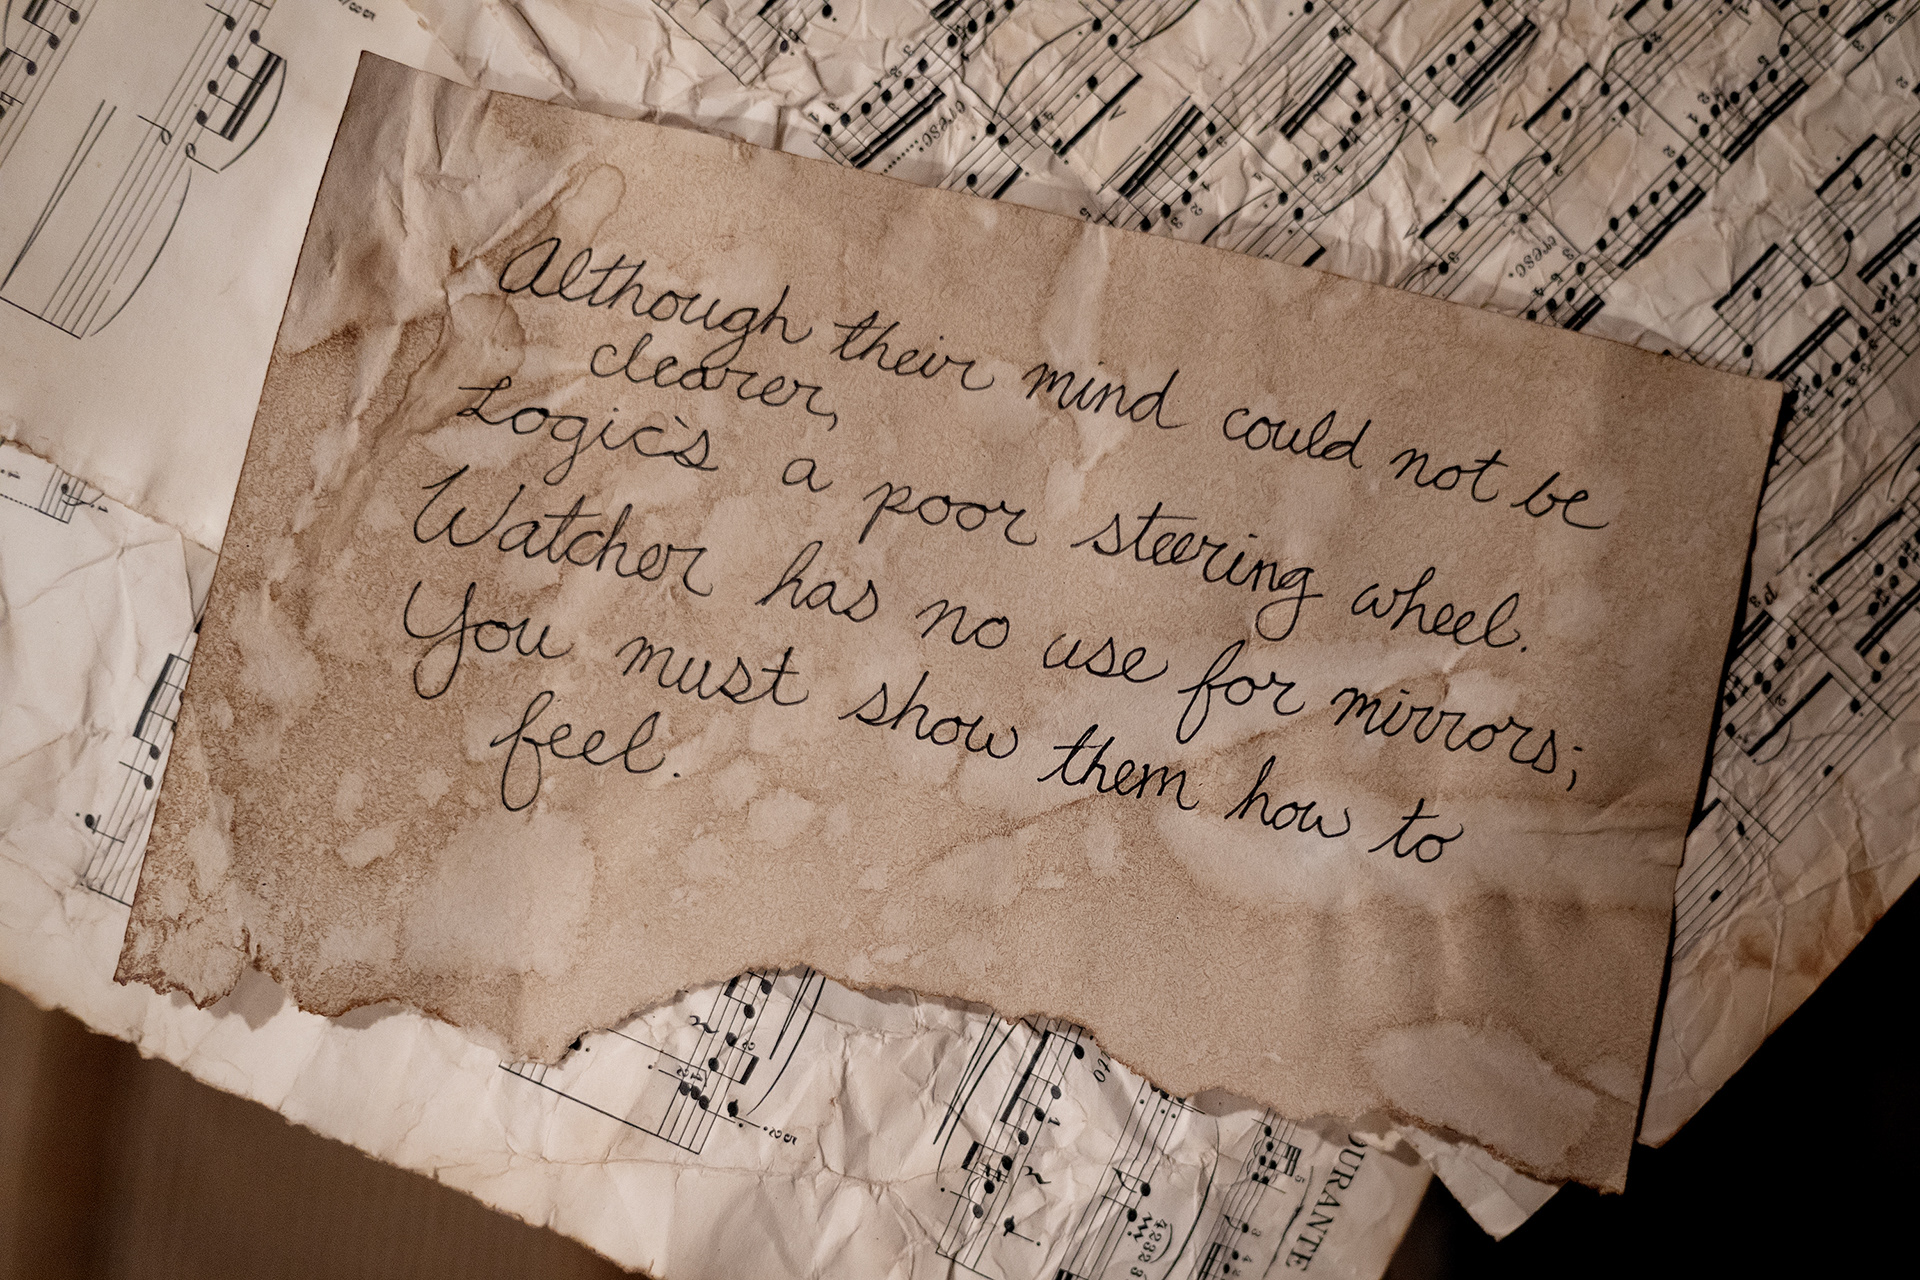 Although their mind could not be
clearer,
Logic's a poor steering wheel.
Watcher has no use for mirrors;
You must show them how to
feel.
cresc.
cresc.